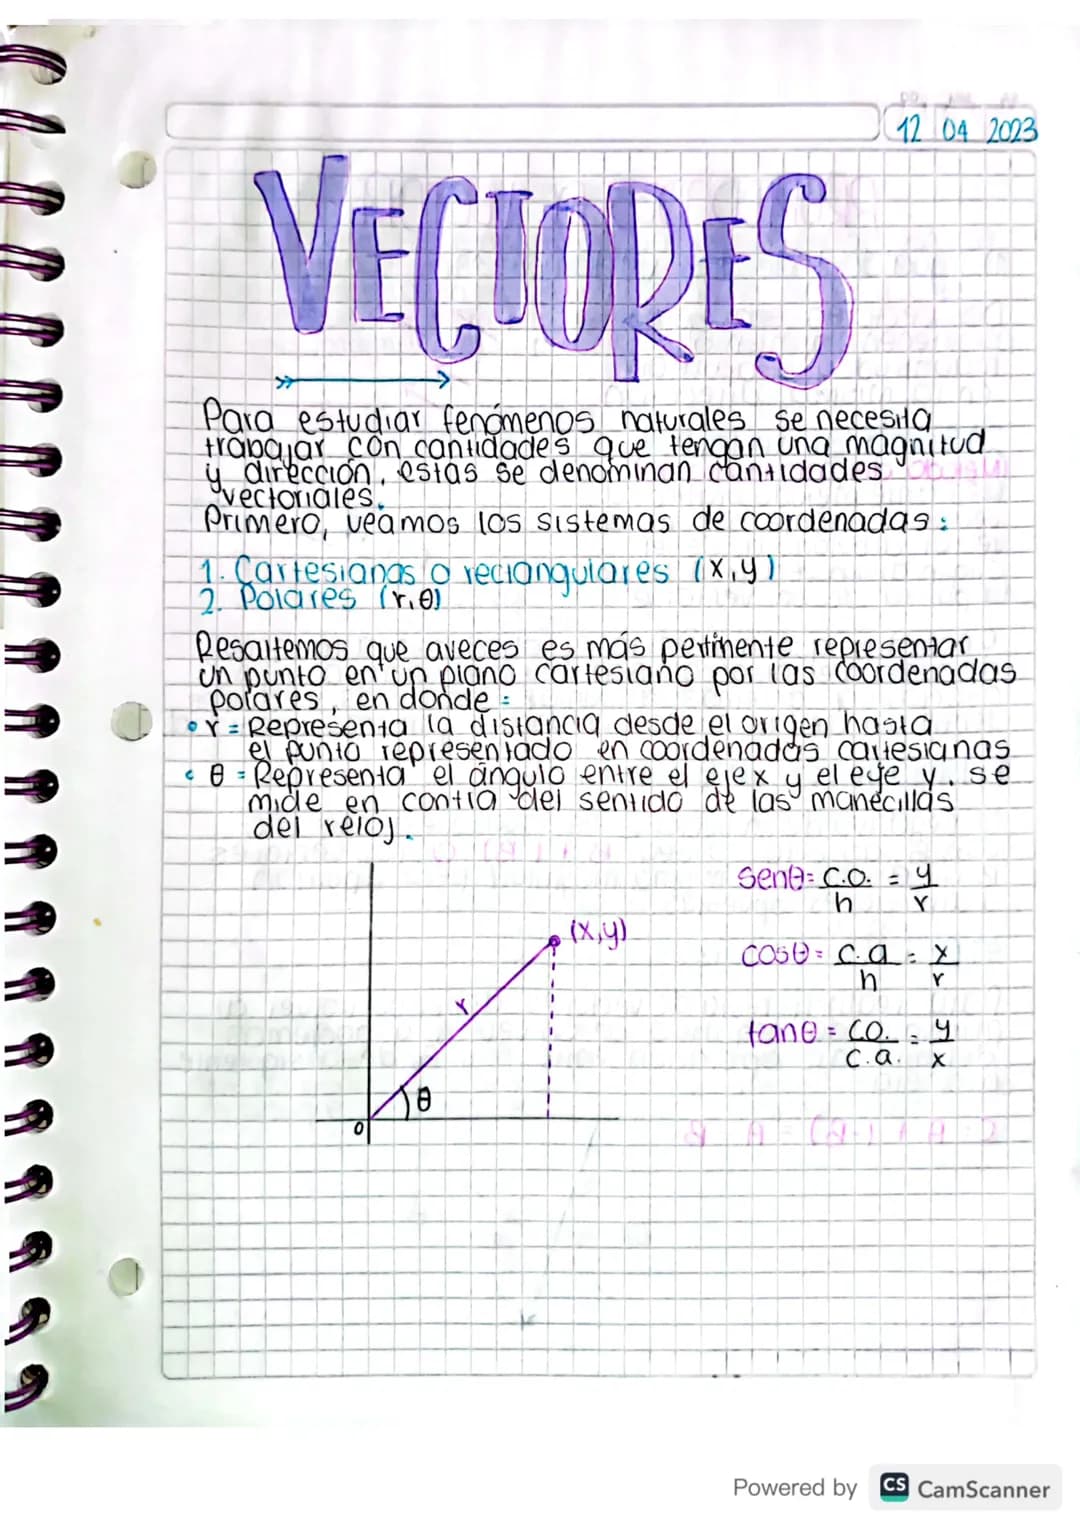 12 04 2023
VECTORES
Para estudiar fenómenos naturales se necesita
trabajar con cantidades que tengan una magnitud
y dirección, estas se denominan cantidades
vectoriales.
Primero, veamos los sistemas de coordenadas:
1. Cartesianas o rectangulares (x,y)
2. Polares (r,θ)
Resaltemos que aveces es más pertinente representar
un punto en un plano cartesiano por las coordenadas
polares, en donde:
• r = Representa la distancia desde el origen hasta
el punto representado en coordenadas cartesianas
• θ = Representa el ángulo entre el eje x y el eje y. se
mide en contra del sentido de las manecillas
del reloj.
senθ = c.o./h = y/r
(x,y)
cosθ = c.a/h = x/r
r
tanθ = co./c.a. = y/x
θ
0
Powered by CS CamScanner